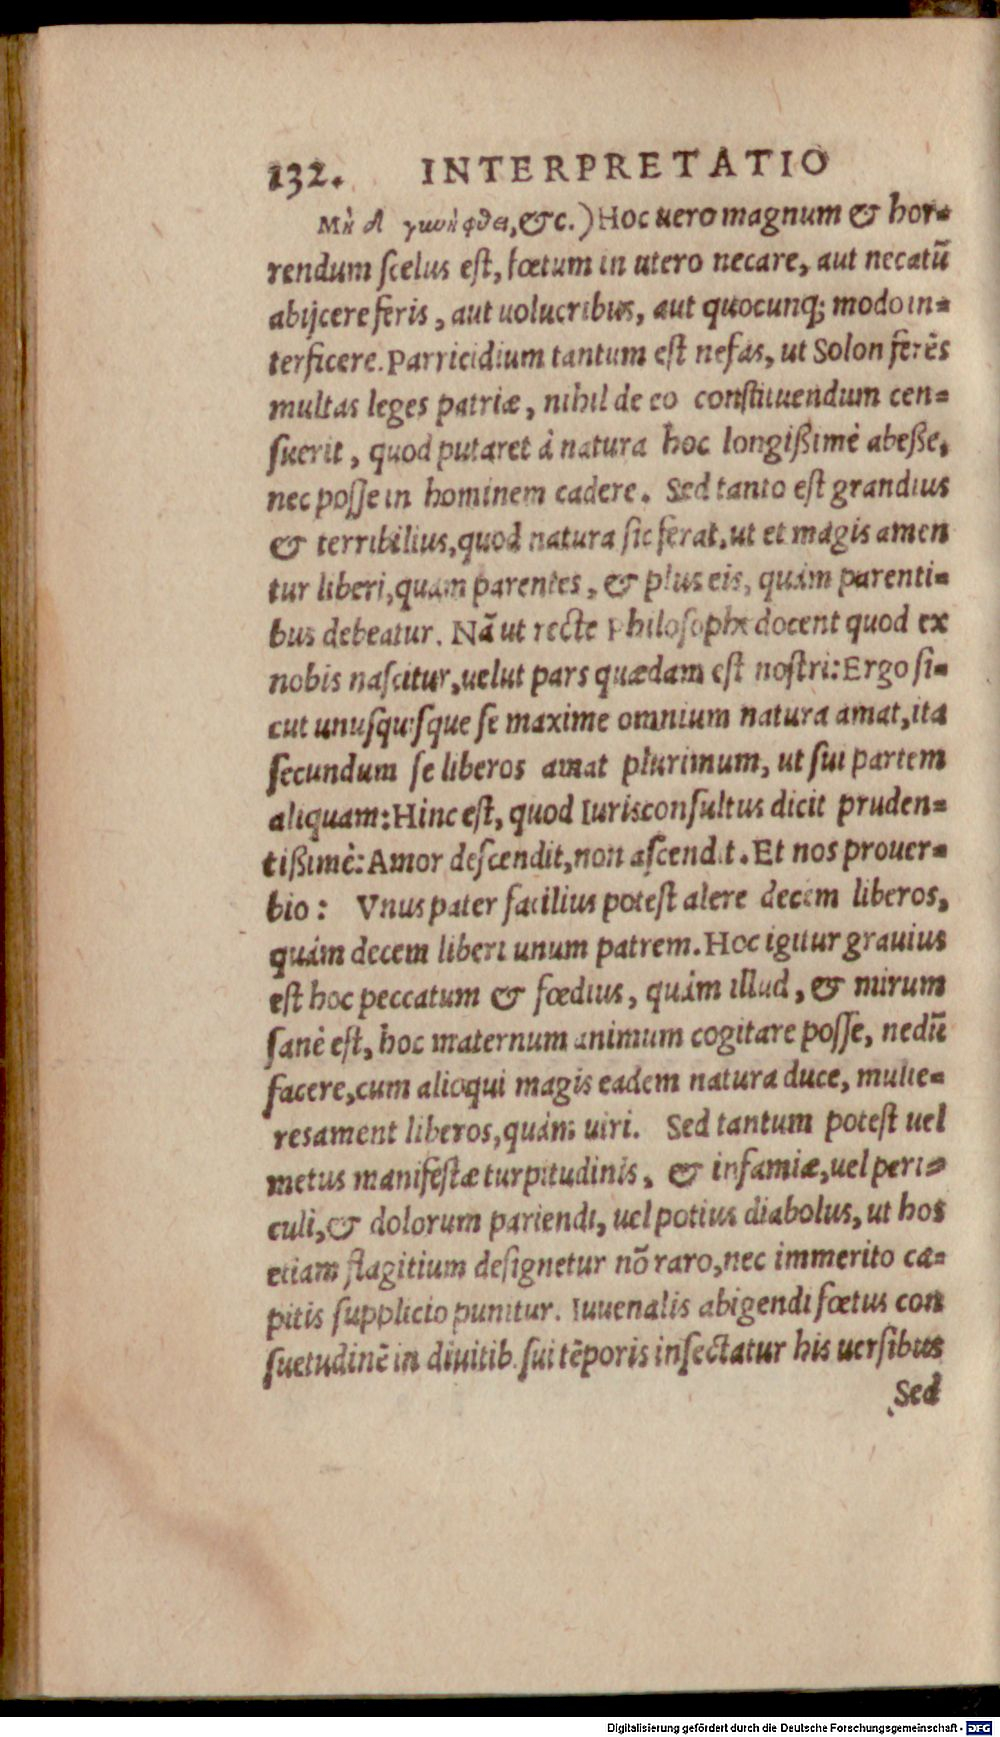 132. INTERPRETATIO
Μὴ δὲ γυνὴ φθεί, &c.) Hoc uero magnum & hor-
rendum scelus est, fœtum in utero necare, aut necatū
abijcere feris, aut uolucribus, aut quocunq; modo in-
terficere. Parricidium tantum est nefas, ut Solon ferēs
multas leges patriæ, nihil de eo constituendum cen-
suerit, quod putaret à natura hoc longißimè abeße,
nec posse in hominem cadere. Sed tanto est grandius
& terribilius, quod natura sic ferat, ut et magis amen
tur liberi, quam parentes, & plus eis, quàm parenti-
bus debeatur. Nā ut recte Philosophi docent quod ex
nobis nascitur, uelut pars quædam est nostri: Ergo si-
cut unusquisque se maxime omnium natura amat, ita
secundum se liberos amat plurimum, ut sui partem
aliquam: Hinc est, quod Iurisconsultus dicit pruden-
tißimè: Amor descendit, non ascendit. Et nos prouer-
bio: Vnus pater facilius potest alere decem liberos,
quàm decem liberi unum patrem. Hoc igitur grauius
est hoc peccatum & fœdius, quàm illud, & mirum
sanè est, hoc maternum animum cogitare posse, nedū
facere, cum alioqui magis eadem natura duce, mulie-
res ament liberos, quàm uiri. Sed tantum potest uel
metus manifestæ turpitudinis, & infamiæ, uel peri-
culi, & dolorum pariendi, uel potius diabolus, ut hos
etiam flagitium designetur nō raro, nec immerito ca-
pitis supplicio punitur. Iuuenalis abigendi fœtus con
suetudinē in diuitib. sui tēporis insectatur his uersibus
Sed
Digitalisierung gefördert durch die Deutsche Forschungsgemeinschaft - DFG